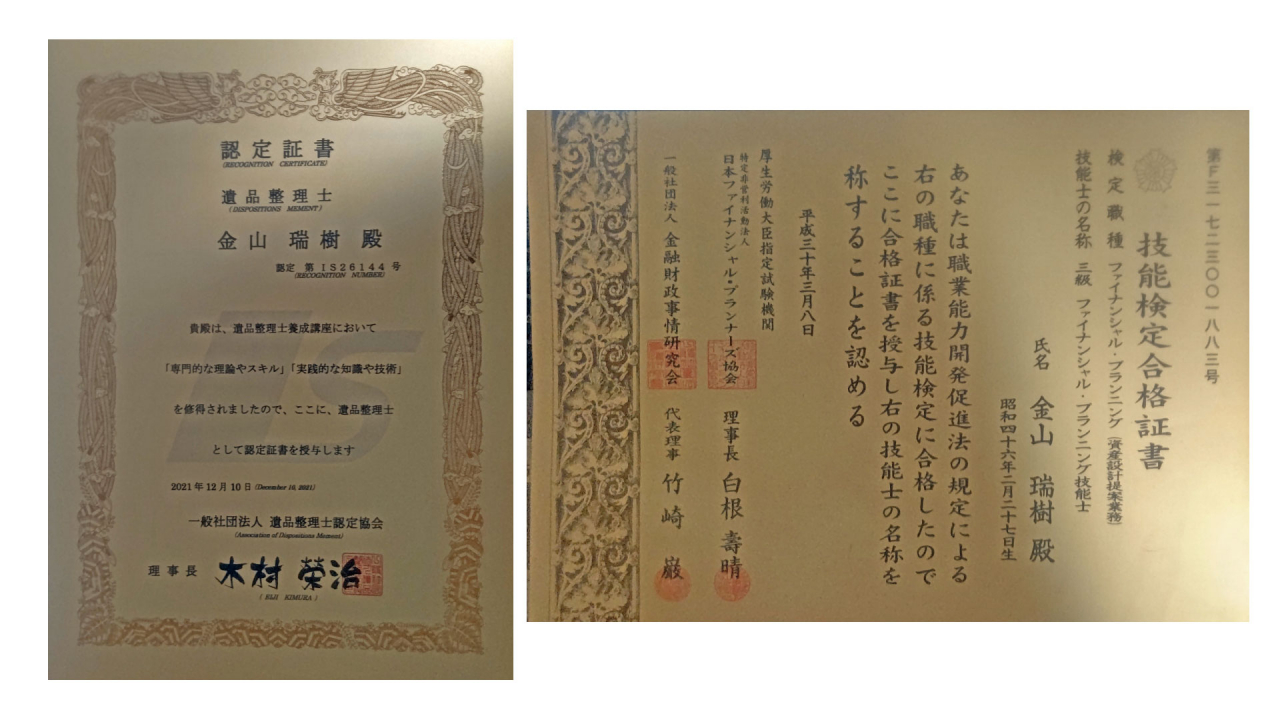 認定証書
(RECOGNITION CERTIFICATE)
遺品整理士
(DISPOSITIONS MEMENT)
金山 瑞樹 殿
認定 第 IS26144 号
(RECOGNITION NUMBER)
貴殿は、遺品整理士養成講座において
「専門的な理論やスキル」「実践的な知識や技術」
を修得されましたので、ここに、遺品整理士
として認定証書を授与します
2021年12月10日 (December 10, 2021)
一般社団法人 遺品整理士認定協会
(Association of Dispositions Mement)
理事長 木村 榮治
(EIJI KIMURA)
IS
第F三一七二三〇〇一八八三号
技能検定合格証書
検定職種 ファイナンシャル・プランニング(資産設計提案業務)
技能士の名称 三級 ファイナンシャル・プランニング技能士
氏名 金山 瑞樹 殿
昭和四十六年二月二十七日生
あなたは職業能力開発促進法の規定による
右の職種に係る技能検定に合格したので
ここに合格証書を授与し右の技能士の名称を
称することを認める
平成三十年三月八日
厚生労働大臣指定試験機関
特定非営利活動法人
日本ファイナンシャル・プランナーズ協会 理事長 白根 壽晴
一般社団法人 金融財政事情研究会 代表理事 竹崎 巌